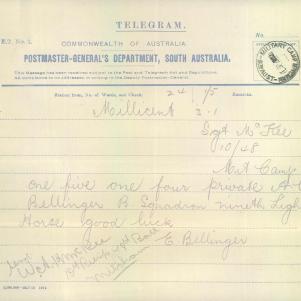 TELEGRAM.
No.
COMMONWEALTH OF AUSTRALIA
POSTMASTER-GENERAL'S DEPARTMENT, SOUTH AUSTRALIA.
This Message has been received subject to the Post and Telegraph Act and Regulations.
All complaints to be addressed in writing to the Deputy Postmaster-General.
MILITARY CAMP
Station from, No. of Words, and Check. Remarks.
24 1/5
Millicent 2-1
Sgt McKee
10/48
Mit Camp
one five one four private A
Bellinger B Squadron nineth Ligh
Horse good luck
E. Bellinger
Mitcham